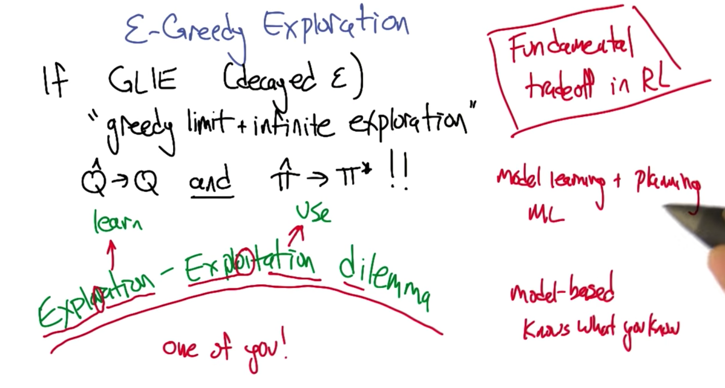 ε-Greedy Exploration
If GLIE (decayed ε)
"greedy limit + infinite exploration"
Q̂→Q and π̂→π* !!
learn
use
Exploration - Exploitation dilemma
one of you!
Fundamental
tradeoff in RL
model learning + planning
ML
model-based
knows what you know